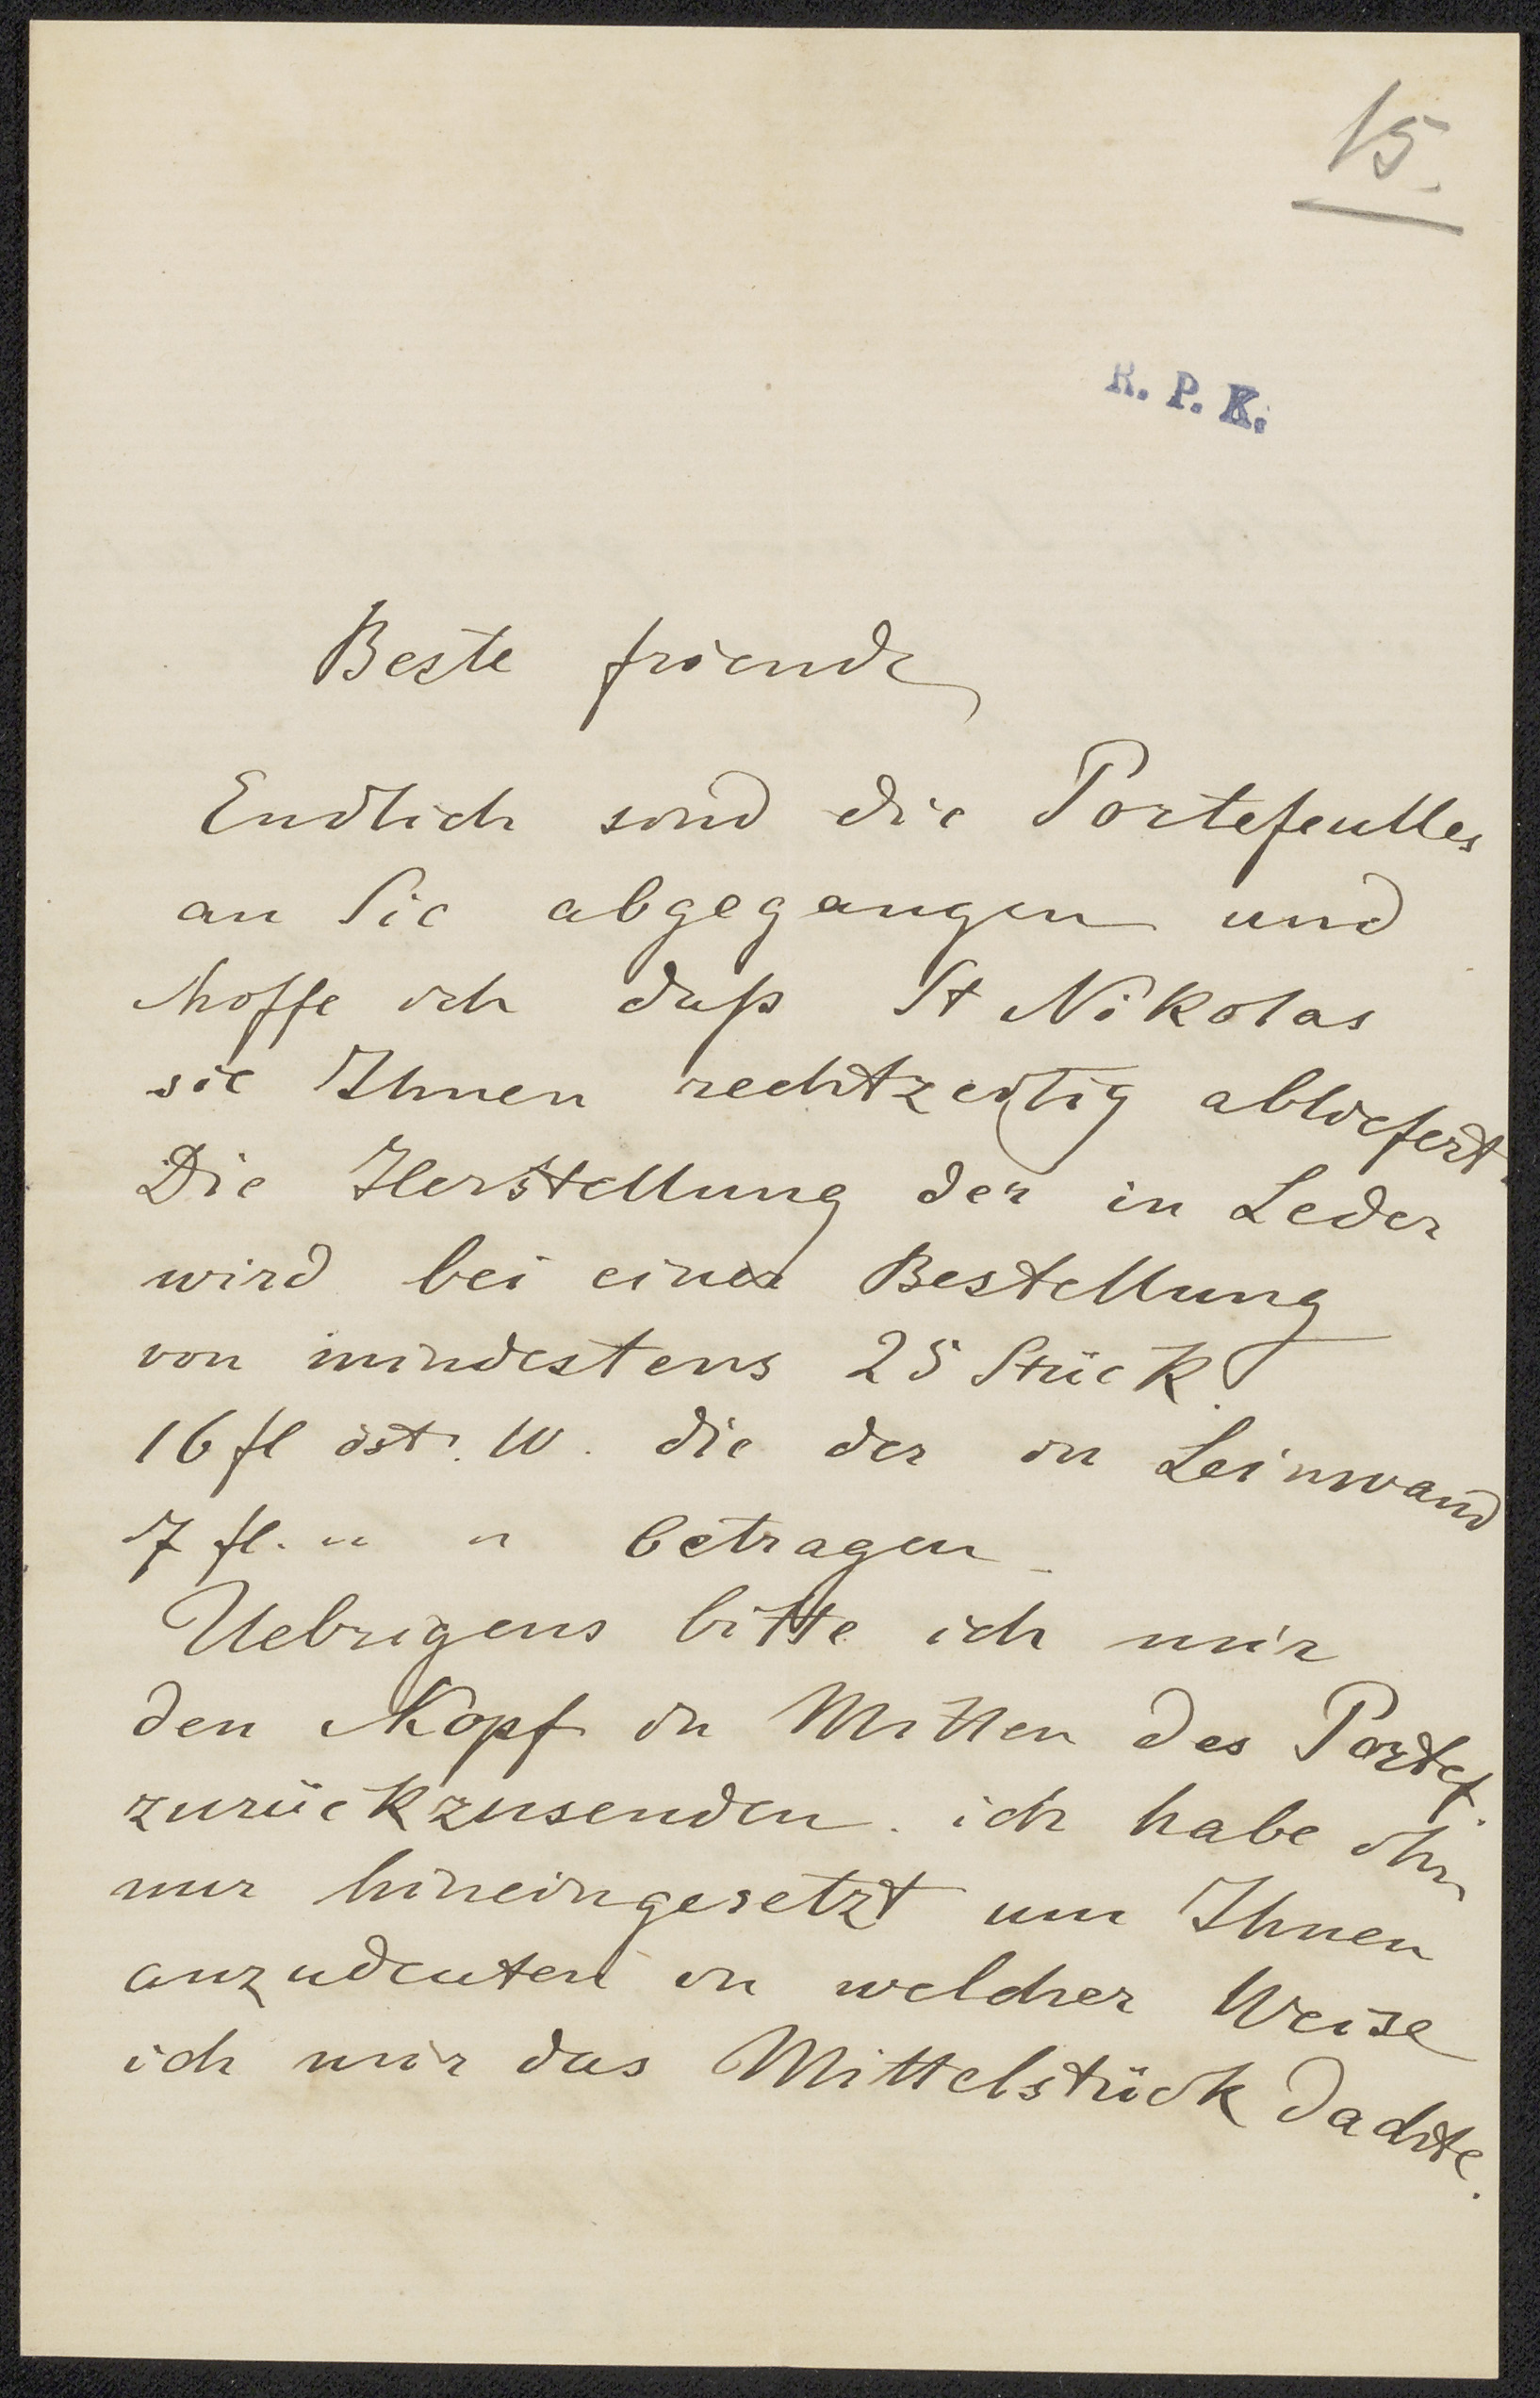 15.
R. P. K.
Beste friend
Endlich sind die Portefeulles
an Sie abgegangen und
hoffe ich daß St Nikolas
sie Ihnen rechtzeitig abliefert.
Die Herstellung der in Leder
wird bei einer Bestellung
von mindestens 25 Stück
16 fl öst. W. die der in Leinwand
7 fl. " " betragen
Uebrigens bitte ich mir
den Kopf in Mitten des Portef.
zurückzusenden. ich habe ihn
nur hineingesetzt um Ihnen
anzudeuten in welcher Weise
ich mir das Mittelstück dachte.